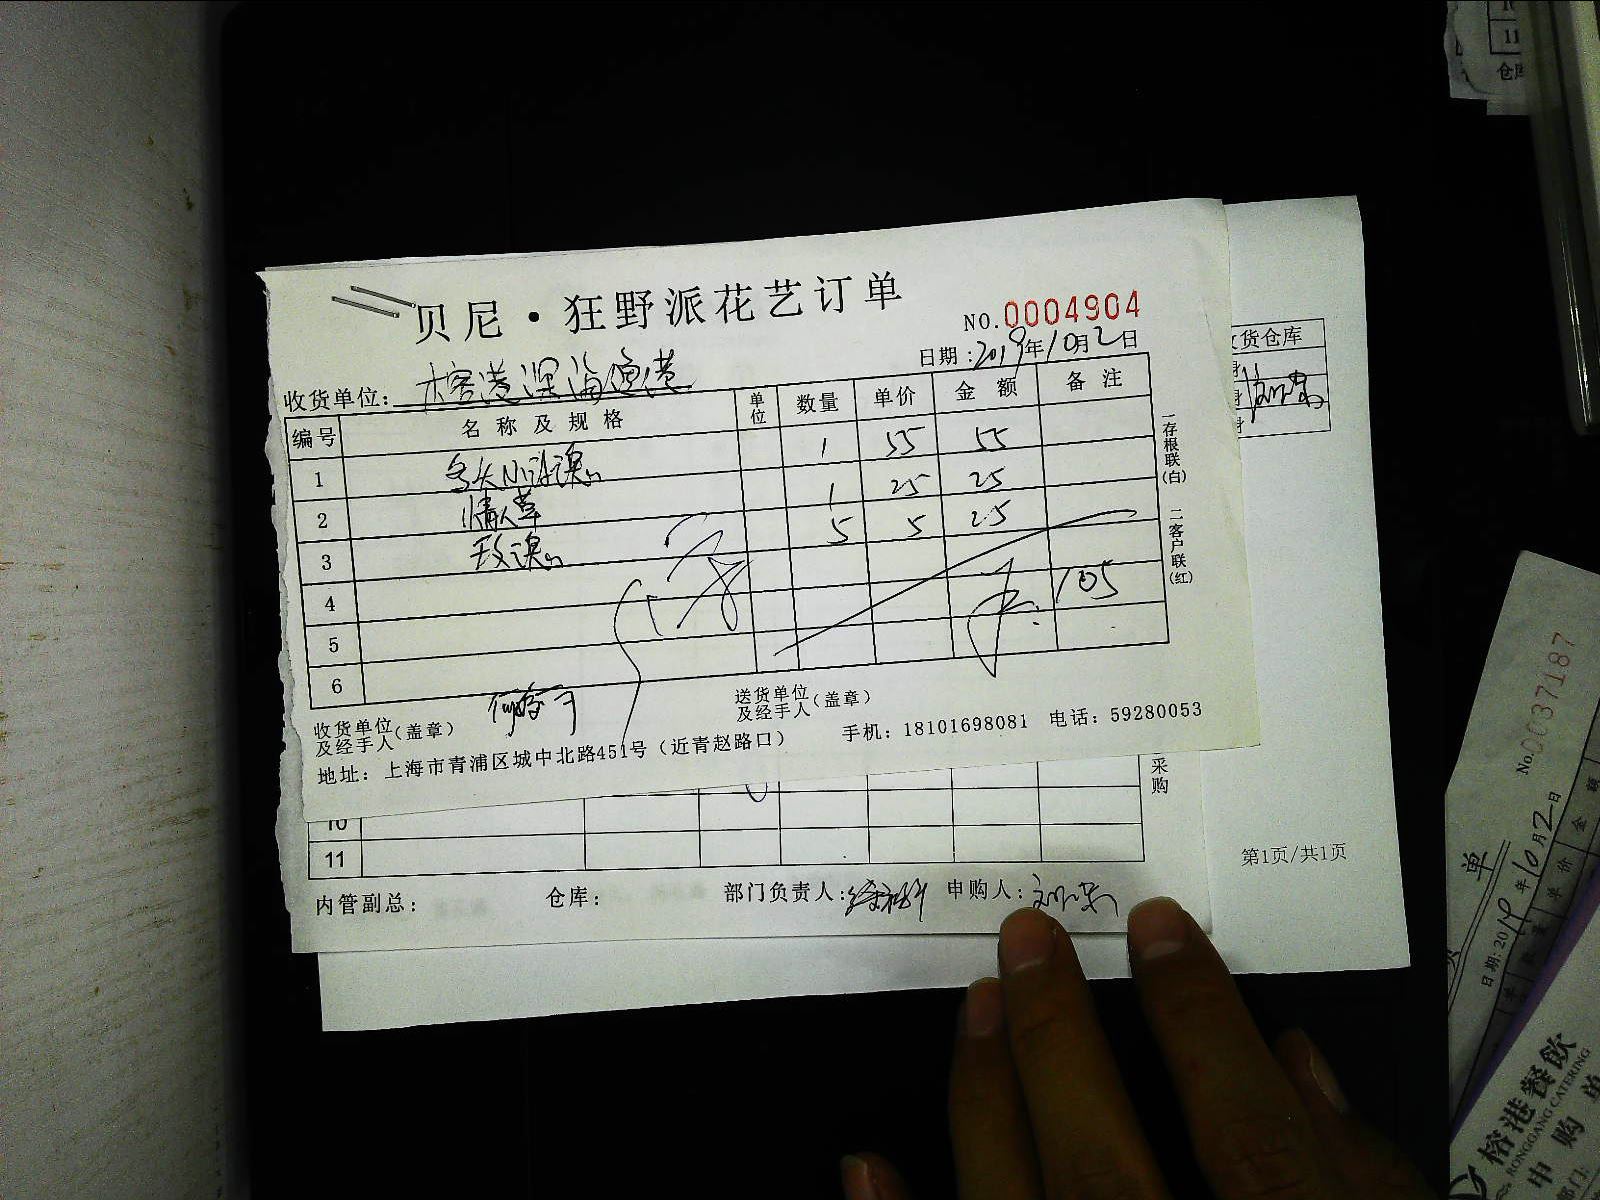 贝尼·狂野派花艺订单
NO.0004904
日期:2019年10月2日
收货单位:榕港深海渔港
编号 名称及规格 单位 数量 单价 金额 备注
1 多头小玫瑰 1 55 55
2 情人草 1 25 25
3 玫瑰 5 5 25
4
5 105
6
一存根联(白) 二客户联(红)
收货单位及经手人(盖章)
送货单位及经手人(盖章)
地址:上海市青浦区城中北路451号(近青赵路口) 手机:18101698081 电话:59280053
采购
10
11
内管副总: 仓库: 部门负责人: 申购人:
货仓库
第1页/共1页
11
No.0037187
单
日期:2019年10月2日
单价 金额
榕港餐飲
RONGGANG CATERING
申购单